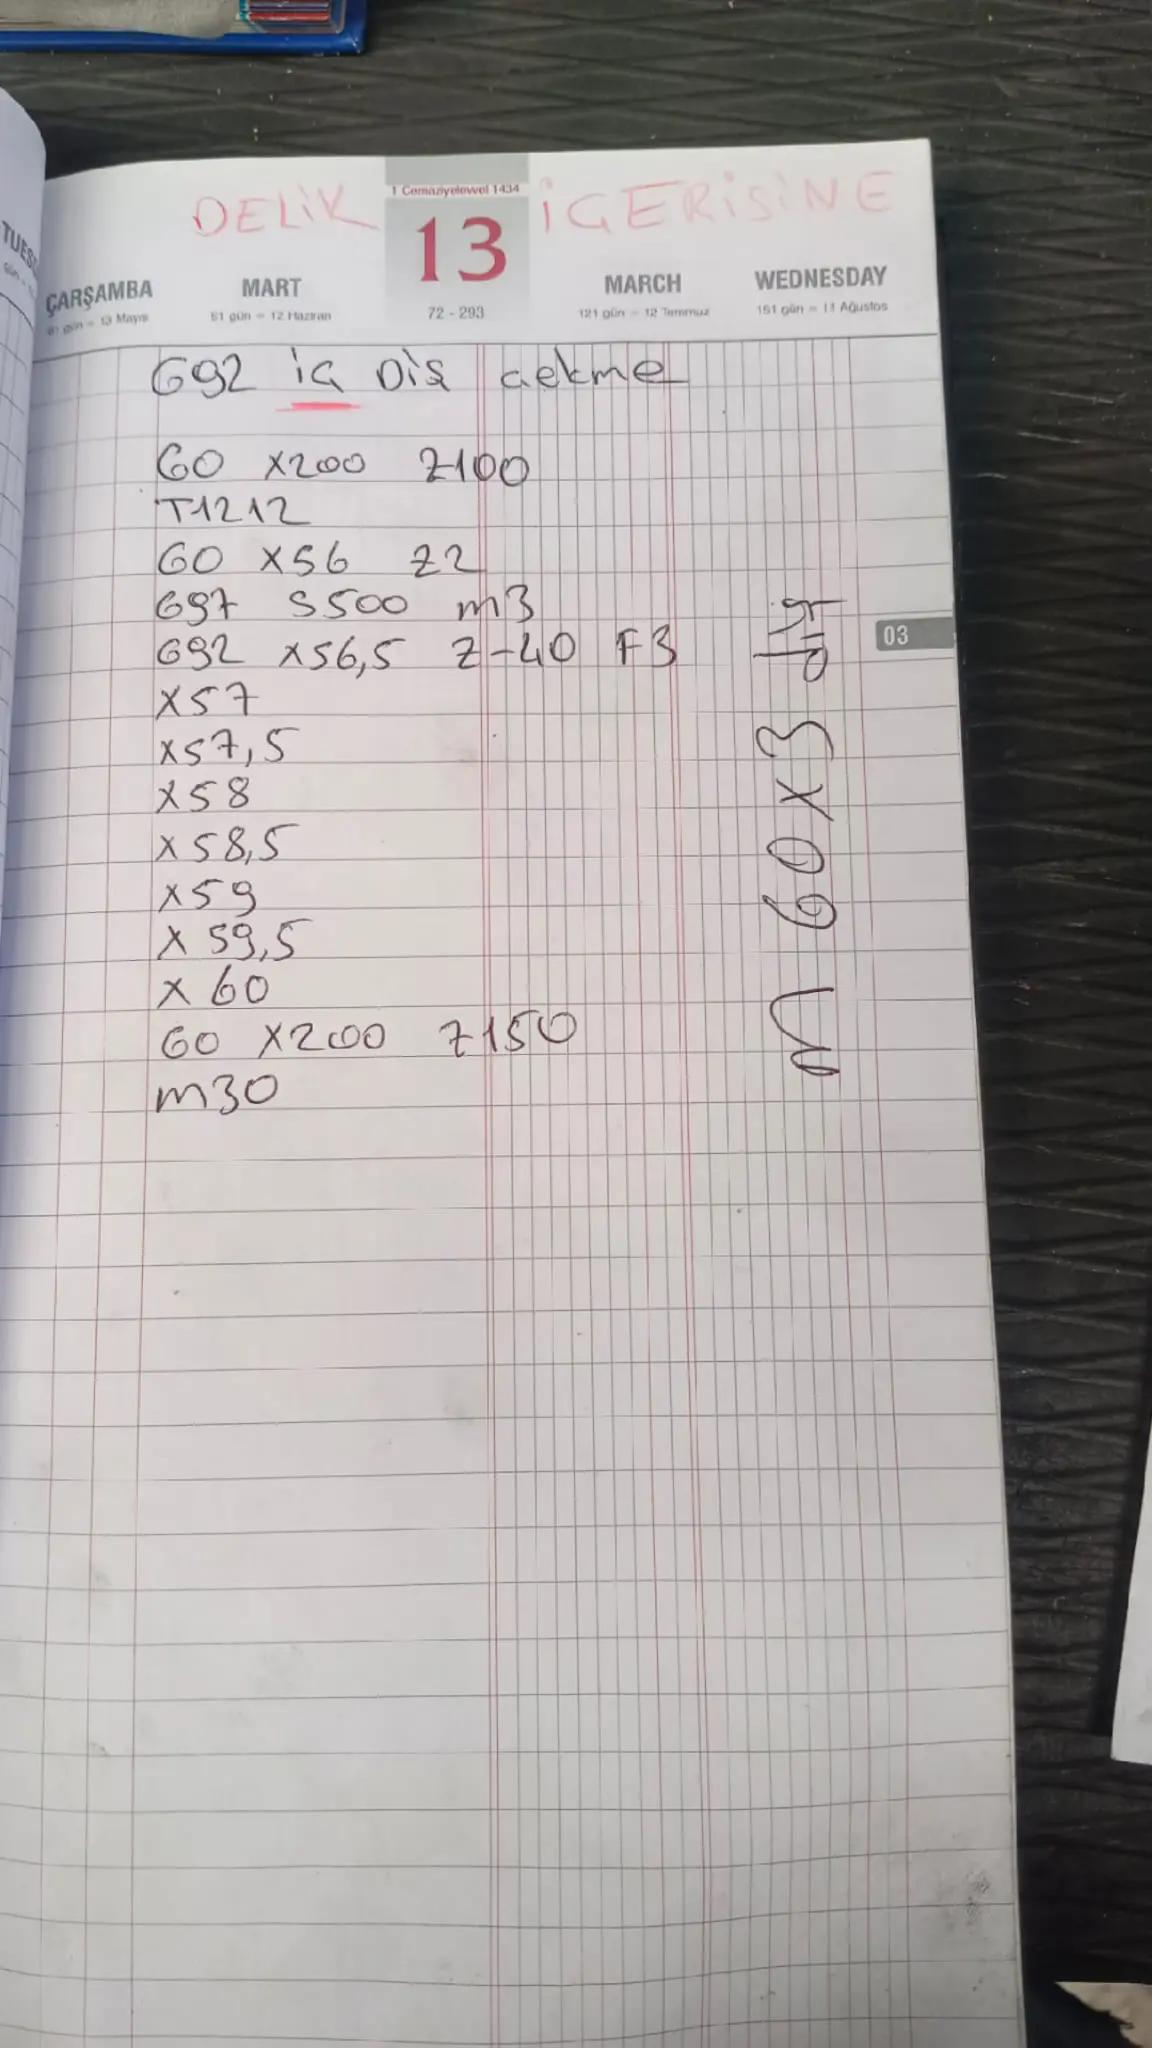 TUES
1 Cemaziyelevvel 1434
DELİK İÇERİSİNE
13
ÇARŞAMBA MART MARCH WEDNESDAY
51 gün = 12 Haziran 72 - 293 121 gün = 12 Temmuz 151 gün = 11 Ağustos
G92 iç Diş çekme
G0 X200 Z100
T1212
G0 X56 Z2
G97 S500 m3
G92 X56,5 Z-40 F3
03
X57
X57,5
X58
X58,5
X59
X59,5
X60
G0 X200 Z150
m30
M 60x3 diş